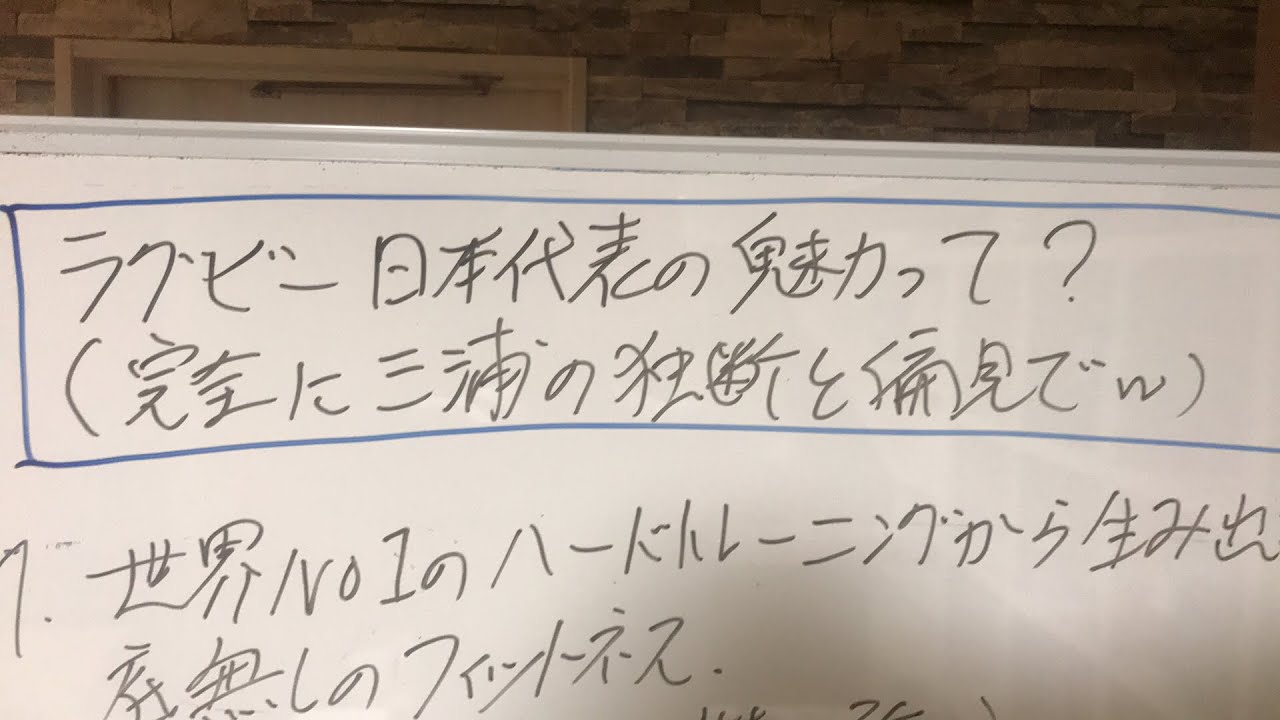 ラグビー日本代表の魅力って?
(完全に三浦の独断と偏見でw)
1. 世界NO1のハードトレーニングから生み出
底無しのフィットネス.